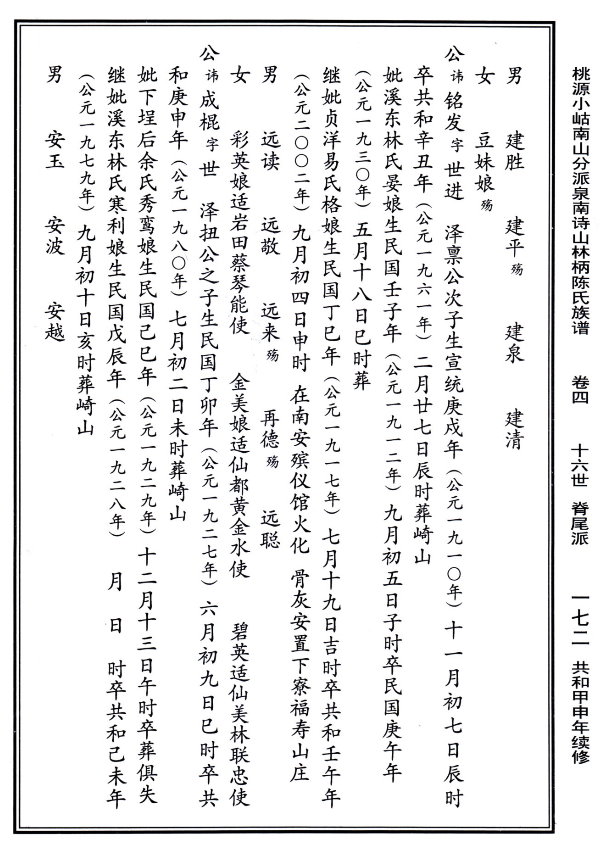 桃源小岵南山分派泉南诗山林柄陈氏族谱 卷四 十六世 脊尾派 一七二 共和甲申年续修
男 建胜 建平殇 建泉 建清
女 豆妹娘殇
公讳铭发字世进 泽禀公次子生宣统庚戌年（公元一九一〇年）十一月初七日辰时
卒共和辛丑年（公元一九六一年）二月廿七日辰时葬崎山
妣溪东林氏晏娘生民国壬子年（公元一九一二年）九月初五日子时卒民国庚午年
（公元一九三〇年）五月十八日巳时葬
继妣贞洋易氏格娘生民国丁巳年（公元一九一七年）七月十九日吉时卒共和壬午年
（公元二〇〇二年）九月初四日申时 在南安殡仪馆火化 骨灰安置下寮福寿山庄
男 远读 远敬 远来殇 再德殇 远聪
女 彩英娘适岩田蔡琴能使 金美娘适仙都黄金水使 碧英适仙美林联忠使
公讳成棍字世 泽扭公之子生民国丁卯年（公元一九二七年）六月初九日巳时卒共
和庚申年（公元一九八〇年）七月初二日未时葬崎山
妣下埕后余氏秀鸾娘生民国己巳年（公元一九二九年）十二月十三日午时卒葬俱失
继妣溪东林氏寒利娘生民国戊辰年（公元一九二八年） 月 日 时卒共和己未年
（公元一九七九年）九月初十日亥时葬崎山
男 安玉 安波 安越